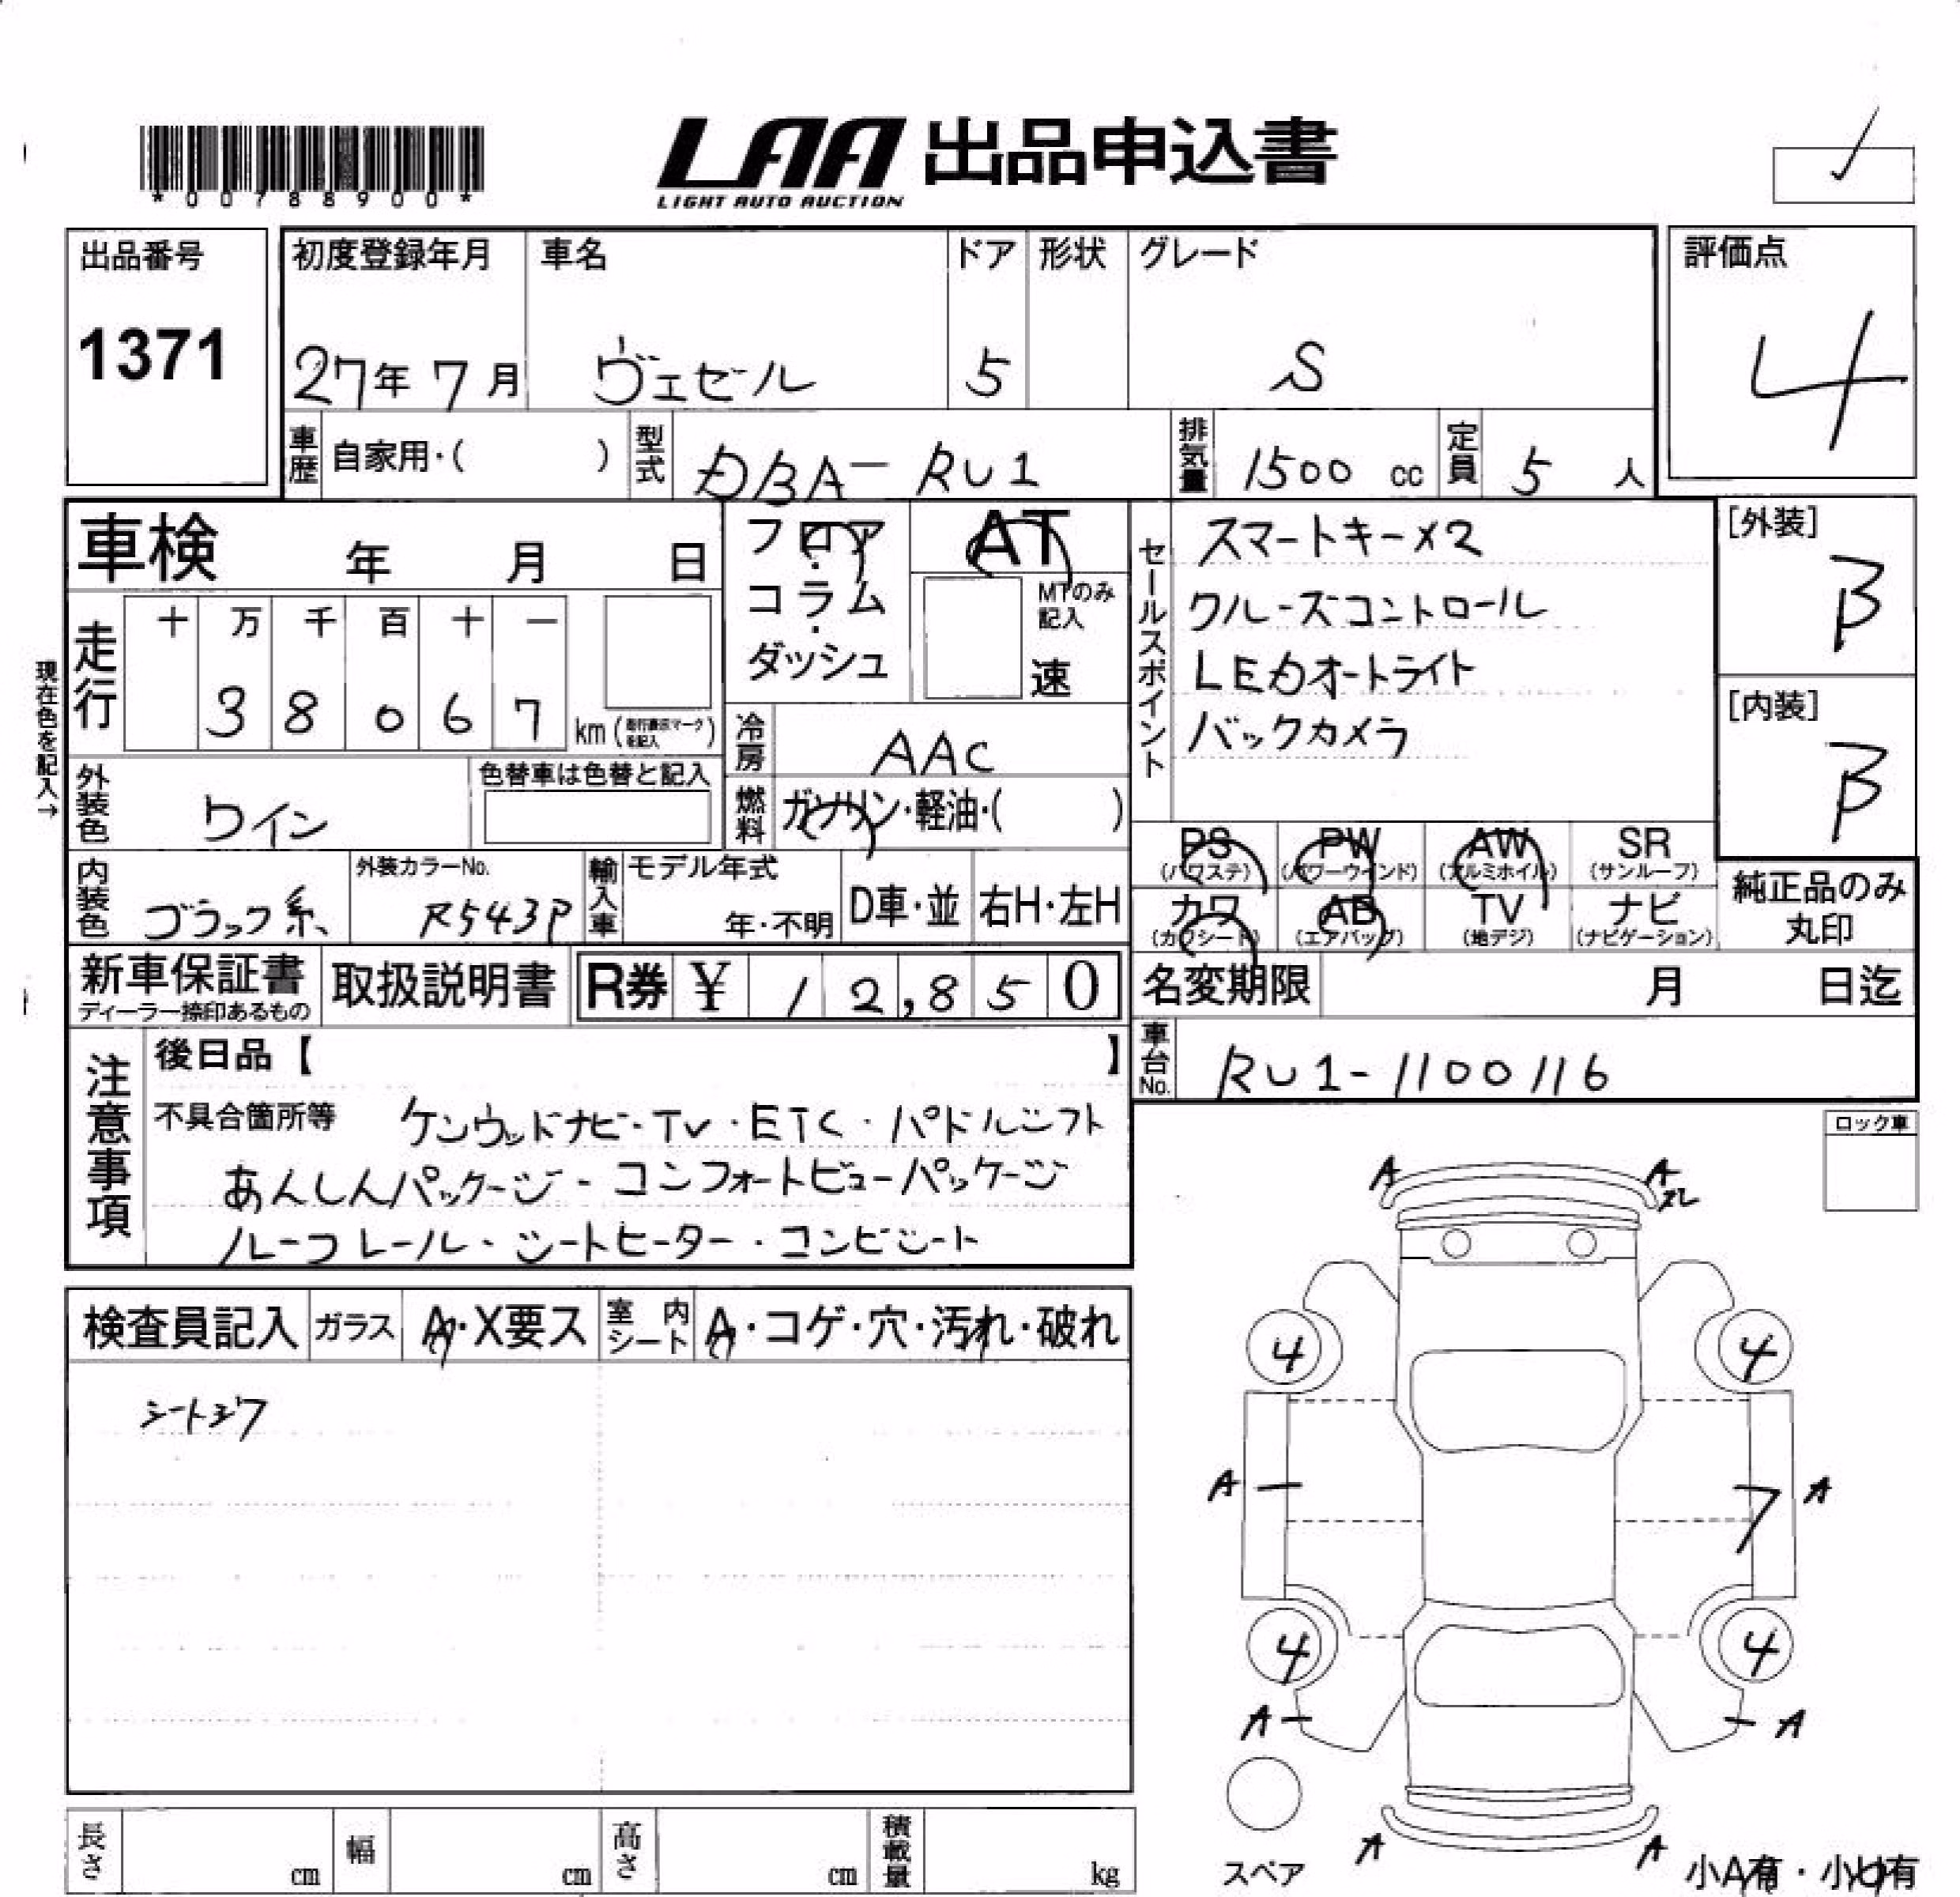 *00788900*
LAA 出品申込書
LIGHT AUTO AUCTION
出品番号
1371
初度登録年月
27年 7月
車名
ヴェゼル
ドア
5
形状
グレード
S
評価点
4
車歴 自家用・( )
型式 DBA-RU1
排気量 1500 cc
定員 5 人
車検 年 月 日
現在色を記入→
走行
十 万 千 百 十 一
3 8 0 6 7 km (走行表示マークを記入)
フロア・コラム・ダッシュ
AT
MTのみ記入
速
セールスポイント
スマートキー×2
クルーズコントロール
LEDオートライト
バックカメラ
[外装]
B
[内装]
B
冷房 AAC
燃料 ガソリン・軽油・( )
外装色 ワイン
色替車は色替と記入
内装色 ブラック系
外装カラーNo. R543P
輸入車 モデル年式 年・不明
D車・並 右H・左H
PS (パワステ) PW (パワーウインド) AW (アルミホイル) SR (サンルーフ)
カワ (カワシート) AB (エアバッグ) TV (地デジ) ナビ (ナビゲーション)
純正品のみ丸印
新車保証書 ディーラー捺印あるもの
取扱説明書
R券 ¥ 12,850
名変期限 月 日迄
車台No. RU1-1100116
注意事項
後日品【 】
不具合箇所等 ケンウッドナビ・TV・ETC・パドルシフト
あんしんパッケージ・コンフォートビューパッケージ
ルーフレール・シートヒーター・コンビシート
ロック車
検査員記入 ガラス A・X要ス 室内シート A・コゲ・穴・汚れ・破れ
A A
4 4
A A
4 4
A A
A A
スペア
小A有・小U有
長さ cm 幅 cm 高さ cm 積載量 kg